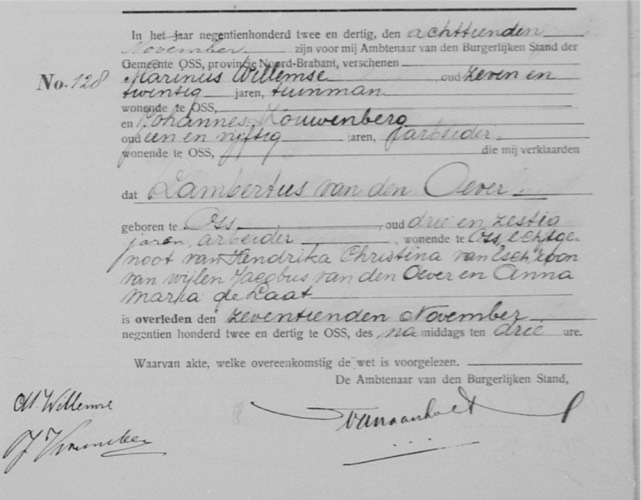 In het jaar negentienhonderd twee en dertig, den achttienden
November zijn voor mij Ambtenaar van den Burgerlijken Stand der
Gemeente OSS, provincie Noord-Brabant, verschenen
No. 128 Marinus Willemse oud zeven en
twintig jaren, tuinman
wonende te OSS,
en Johannes Louwenberg
oud een en vijftig jaren, arbeider
wonende te OSS, die mij verklaarden
dat Lambertus van den Oever
geboren te Oss, oud drie en zestig
jaren, arbeider, wonende te Oss, echtge
noot van Hendrika Christina van Esch, zoon
van wijlen Jacobus van den Oever en Anna
Maria de Laat
is overleden den zeventienden November
negentien honderd twee en dertig te OSS, des na middags ten drie ure.
Waarvan akte, welke overeenkomstig de wet is voorgelezen.
De Ambtenaar van den Burgerlijken Stand,
M. Willemse
J